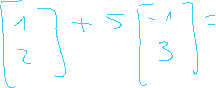 [1 2] + 5 [-1 3] =